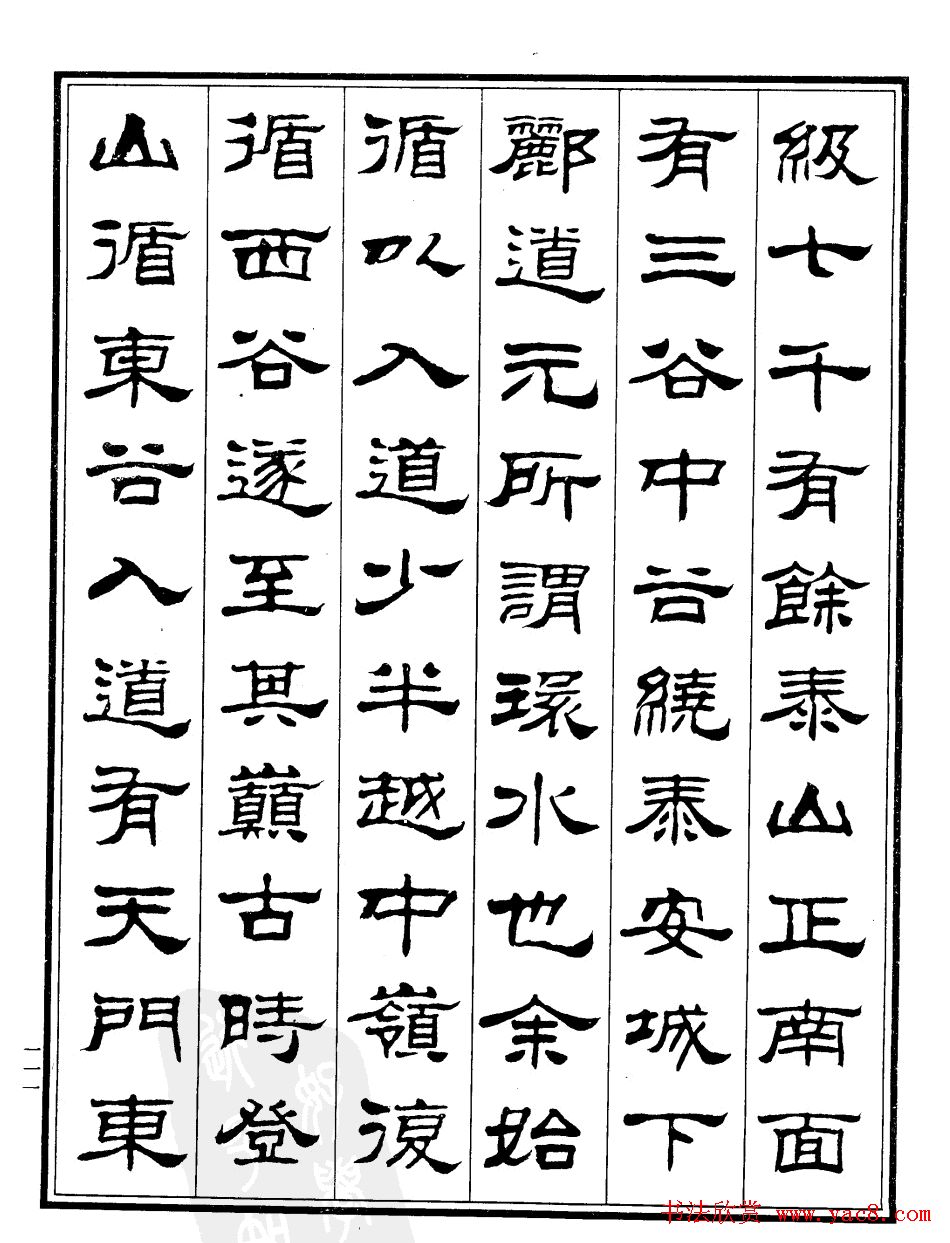 級七千有餘泰山正南面
有三谷中谷繞泰安城下
酈道元所謂環水也余始
循以入道少半越中嶺復
循西谷遂至其巔古時登
山循東谷入道有天門東
一一一
书法欣赏 www.yac8.com